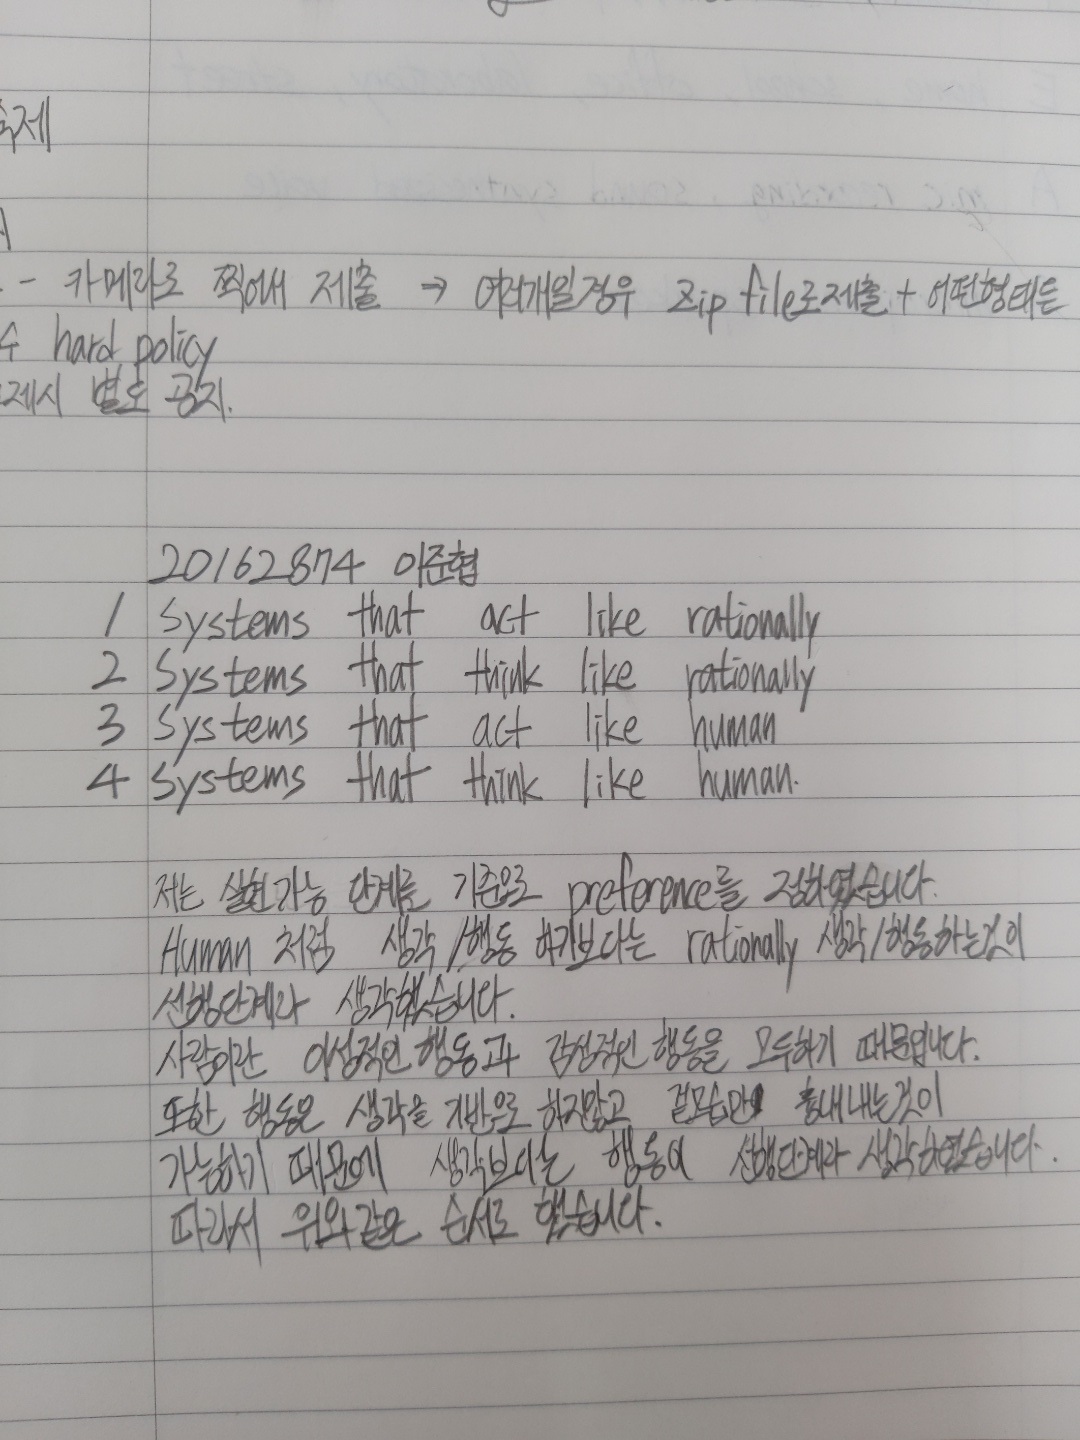 숙제
- 카메라로 찍어내 제출 → 여러개일경우 zip file로제출 + 어떤형태든
hard policy
제시 별도 공지.
20162874 이준협
1 Systems that act like rationally
2 Systems that think like rationally
3 Systems that act like human
4 Systems that think like human.
저는 실현가능 단계를 기준으로 preference를 정하였습니다.
Human 처럼 생각/행동 하기보다는 rationally 생각/행동하는것이
선행단계라 생각했습니다.
사람이란 이성적인 행동과 감성적인 행동을 모두하기 때문입니다.
또한 행동은 생각을 기반으로 하지않고 겉모습만 흉내내는것이
가능하기 때문에 생각보다는 행동이 선행단계라 생각하였습니다.
따라서 위와같은 순서로 했습니다.